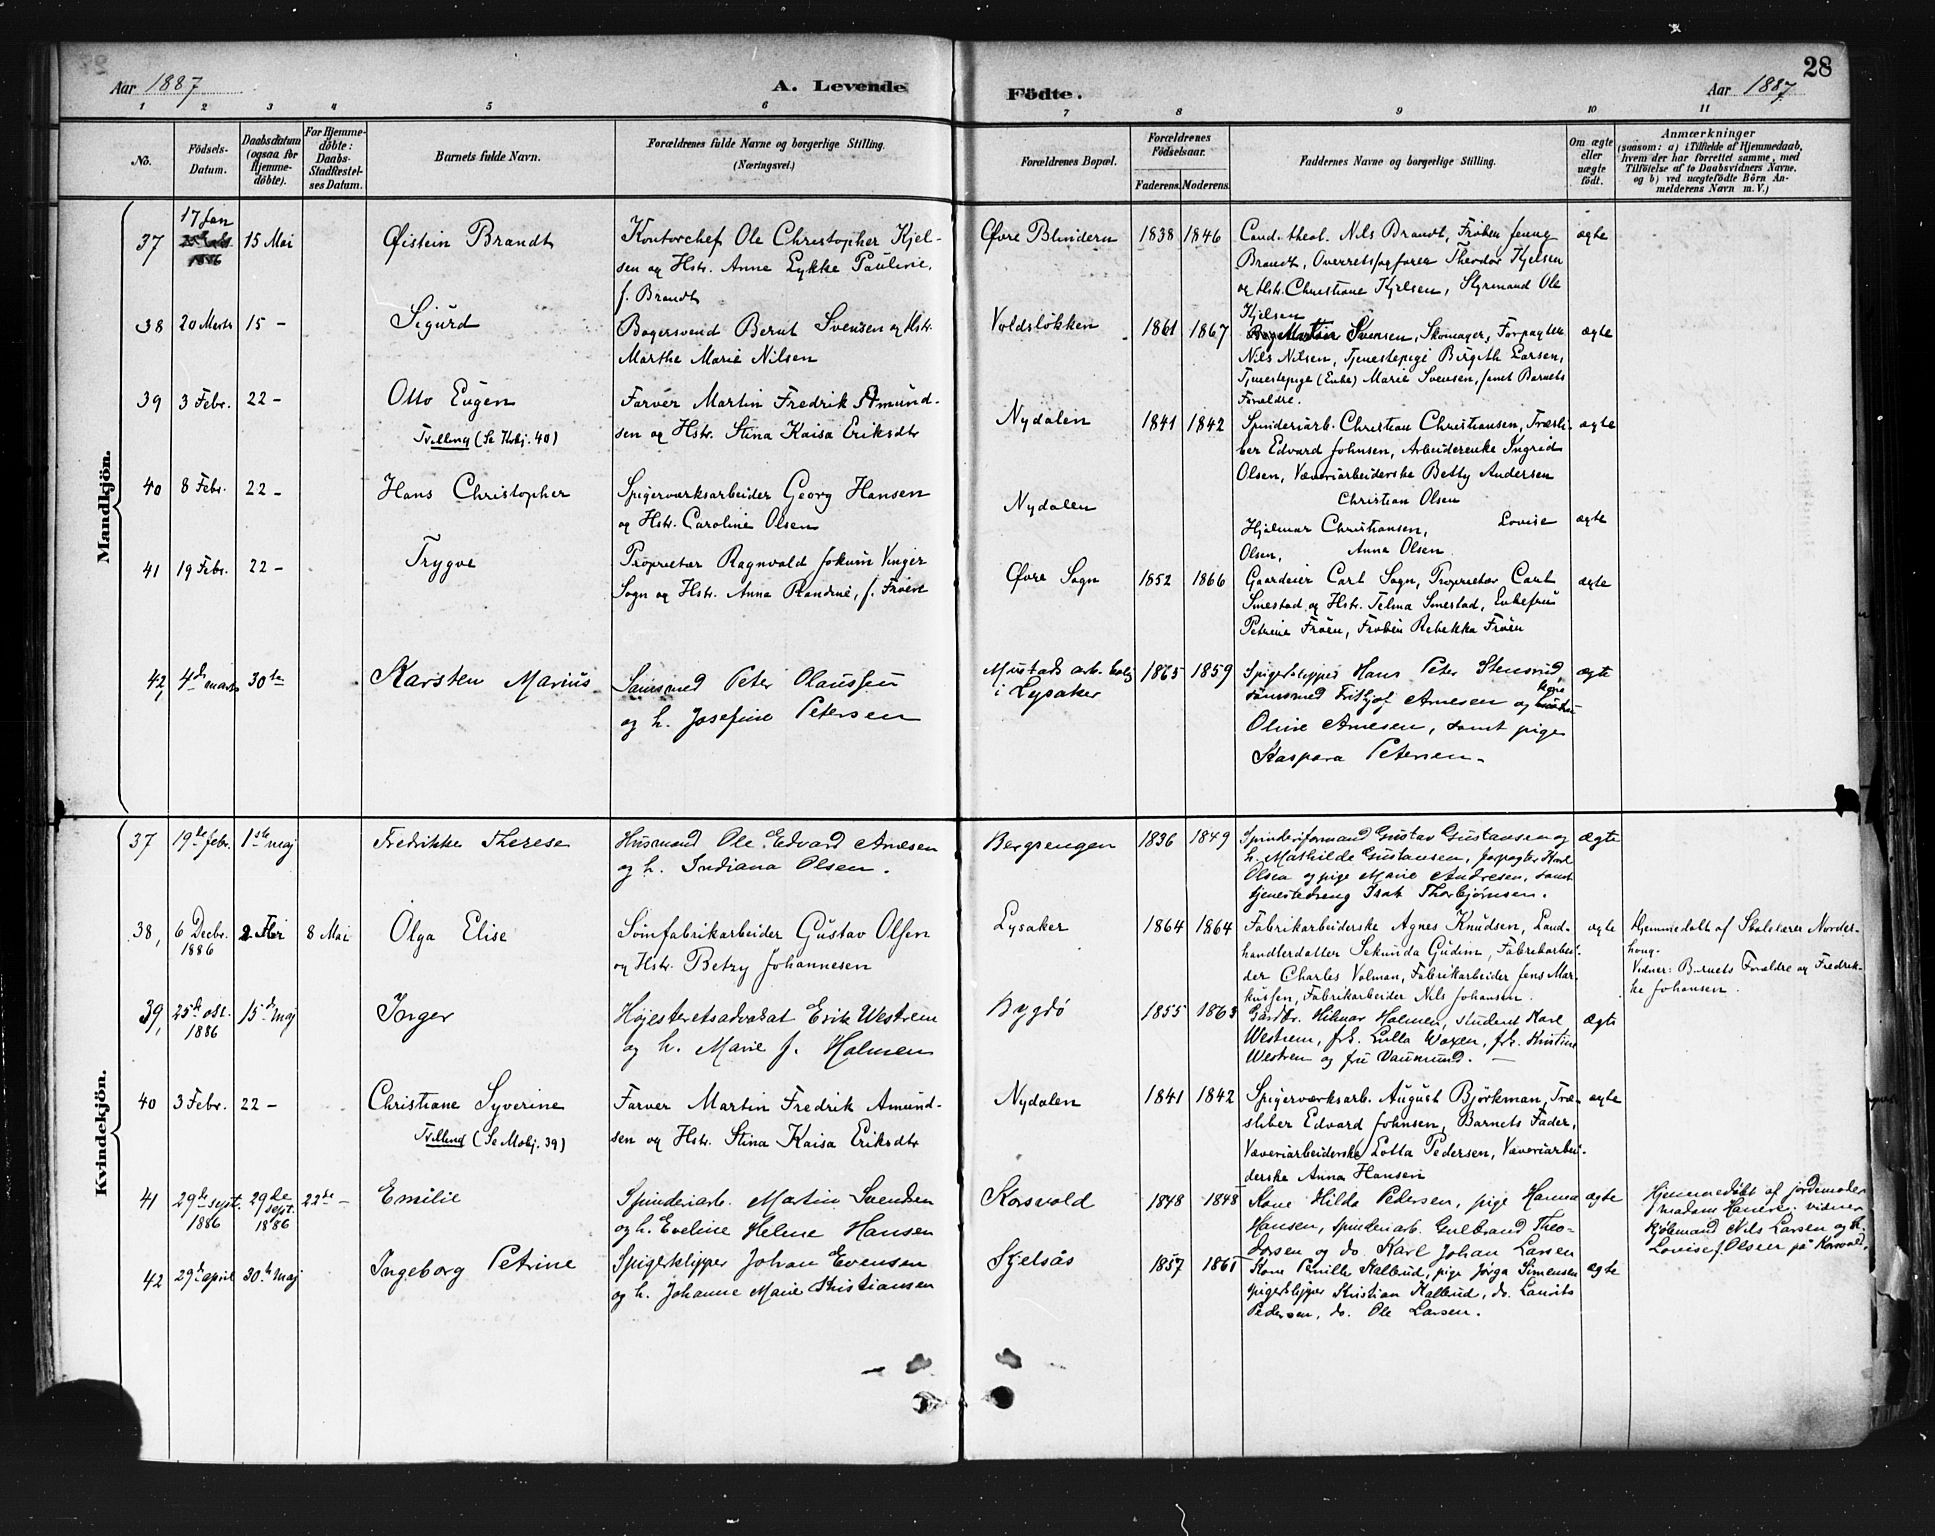 28
Aar 1887
A. Levende
Födte.
Aar 1887
1 2 3 4 5 6 7 8 9 10 11
No.
Födsels-
Datum.
Daabsdatum
(ogsaa for
Hjemme-
döbte).
For Hjemme-
döbte:
Daabs-
Stadfæstel-
ses Datum.
Barnets fulde Navn.
Forældrenes fulde Navne og borgerlige Stilling.
(Næringsvei.)
Forældrenes Bopæl.
Forældrenes
Födselsaar.
Faderens. Moderens.
Faddernes Navne og borgerlige Stilling.
Om ægte
eller
uægte
födt.
Anmærkninger
(saasom: a) i Tilfælde af Hjemmedaab,
hvem der har forrettet samme, med
Tilföielse af to Daabsvidners Navne,
og b) ved uægtefödte Börn An-
melderens Navn m. V.)
Mandkjön.
37
17 Jan
1886
15 Mai
Øistein Brandt
Kontorchef Ole Christopher Kjel-
sen og Hstr. Anne Lykke Pauline,
f. Brandt
Øvre Blindern
1838 1846
Cand. theol. Nils Brandt, Frøken Jenny
Brandt, Overretssagfører Theodor Kjelsen
og Hstr. Christiane Kjelsen, Styrmand Ole
Kjelsen
ægte
38
20 Marts
15 -
Sigurd
Bagersvend Bernt Svensen og Hstr.
Marthe Marie Nilsen
Voldsløkken
1861 1867
Martin Svensen, Skomager, Forpagter
Nils Nilsen, Tjenestepige Birgith Larsen,
Tjenestepige (Enke) Marie Svensen, samt Barnets
Forældre.
ægte
39
3 Febr.
22 -
Otto Eugen
Tvilling (Se Kvkj. 40)
Farver Martin Fredrik Amund-
sen og Hstr. Stina Kaisa Eriksdtr
Nydalen
1841 1842
Spinderiarb. Christian Christiansen, Træsli-
ber Edvard Johnsen, Arbeiderenke Ingrid
Olsen, Væveriarbeiderske Betty Andersen
ægte
40
8 Febr.
22 -
Hans Christopher
Spigerværksarbeider Georg Hansen
og Hstr. Caroline Olsen
Nydalen
Christian Olsen
Hjalmar Christiansen, Lovise
Olsen, Anna Olsen
ægte
41
19 Febr.
22 -
Trygve
Proprietær Ragnvald Jokum Vinger
Sogn og Hstr. Anna Randine, f. Frøen
Øvre Sogn
1852 1866
Gaardeier Carl Sogn, Proprietær Carl
Smestad og Hstr. Telma Smestad, Enkefru
Petrine Frøen, Frøken Rebekka Frøen
ægte
42
4de marts
30te
Karsten Marius
Sømsmed Peter Olaussen
og h. Josefine Petersen
Mustads arb. bolig
i Lysaker
1865 1859
Spigerklipper Hans Peter Stensrud,
sømsmed Frithjof Arnesen og kone
Oline Arnesen, samt pige
Kaspara Petersen.
ægte
Kvindekjön.
37
19de febr.
1ste maj
Fredrikke Therese
Husmand Ole Edvard Arnesen
og h. Indiana Olsen.
Bergsengen
1836 1849
Spinderiformand Gustav Gustavsen og
h. Mathilde Gustavsen, forpagter Karl
Olsen og pige Marie Andresen, samt
tjenestedreng Isak Thorbjørnsen.
ægte
38,
6 Decbr.
1886
8 Mai
Olga Elise
Sømfabrikarbeider Gustav Olsen
og Hstr. Betzy Johannesen
Lysaker
1864 1864
Fabrikarbeiderske Agnes Knudsen, Land-
handlerdatter Sekunda Gudim, Fabrikarbei-
der Charles Volman, Fabrikarbeider Jens Mar-
kussen, Fabrikarbeider Nils Johansen.
ægte
Hjemmedøbt af Skolelærer Norder-
houg.
Vidner: Barnets Forældre og Fredrik-
ke Johansen.
39,
25de okt.
1886
15de maj
Inger
Højesteretsadvokat Erik Westrem
og h. Marie f. Holmen
Bygdø
1855 1863
Gårdbr. Hilmar Holmen, student Karl
Westrem, frk. Lulla Waxen, frk. Kristine
Westrem og fru Vaumund.
ægte
40
3 Febr.
22 -
Christiane Syverine
Tvilling (Se Mskj. 39)
Farver Martin Fredrik Amund-
sen og Hstr. Stina Kaisa Eriksdtr
Nydalen
1841 1842
Spigerværksarb. August Björkman, Træ-
sliber Edvard Johnsen, Barnets Fader,
Væveriarbeiderske Lotta Pedersen, Væveriarbei-
derske Anna Hansen
ægte
41
29de sept.
1886
29de
sept.
1886
22de -
Emilie
Spinderiarb. Martin Svendsen
og h. Eveline Helene Hansen
Korsvold
1848 1848
Kone Hilda Pedersen, pige Hanna
Hansen, spinderiarb. Gulbrand Theo-
dorsen og do. Karl Johan Larsen
ægte
Hjemmedøbt af jordemoder
madam Hansen; vidner
Kjølemand Nils Larsen og h.
Lovise f. Olsen på Korsvold.
42
29de april
30te maj
Ingeborg Petrine
Spigerklipper Johan Evensen
og h. Johanne Marie Kristiansen
Skjelsås
1857 1861
Kone Pernille Kalbrud, pige Jørga Simensen
spigerklipper Kristian Kalbrud, do. Laurits
Pedersen, do. Ole Larsen.
ægte